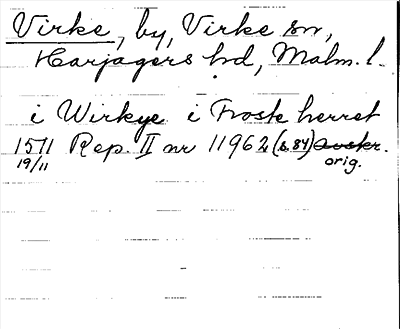 Virke, by, Virke sn,
Harjagers hd, Malm. l.
i Wirkye i Froste herret
1511 Rep. II nr 11962 (s. 84) Avskr.
19/11 orig.